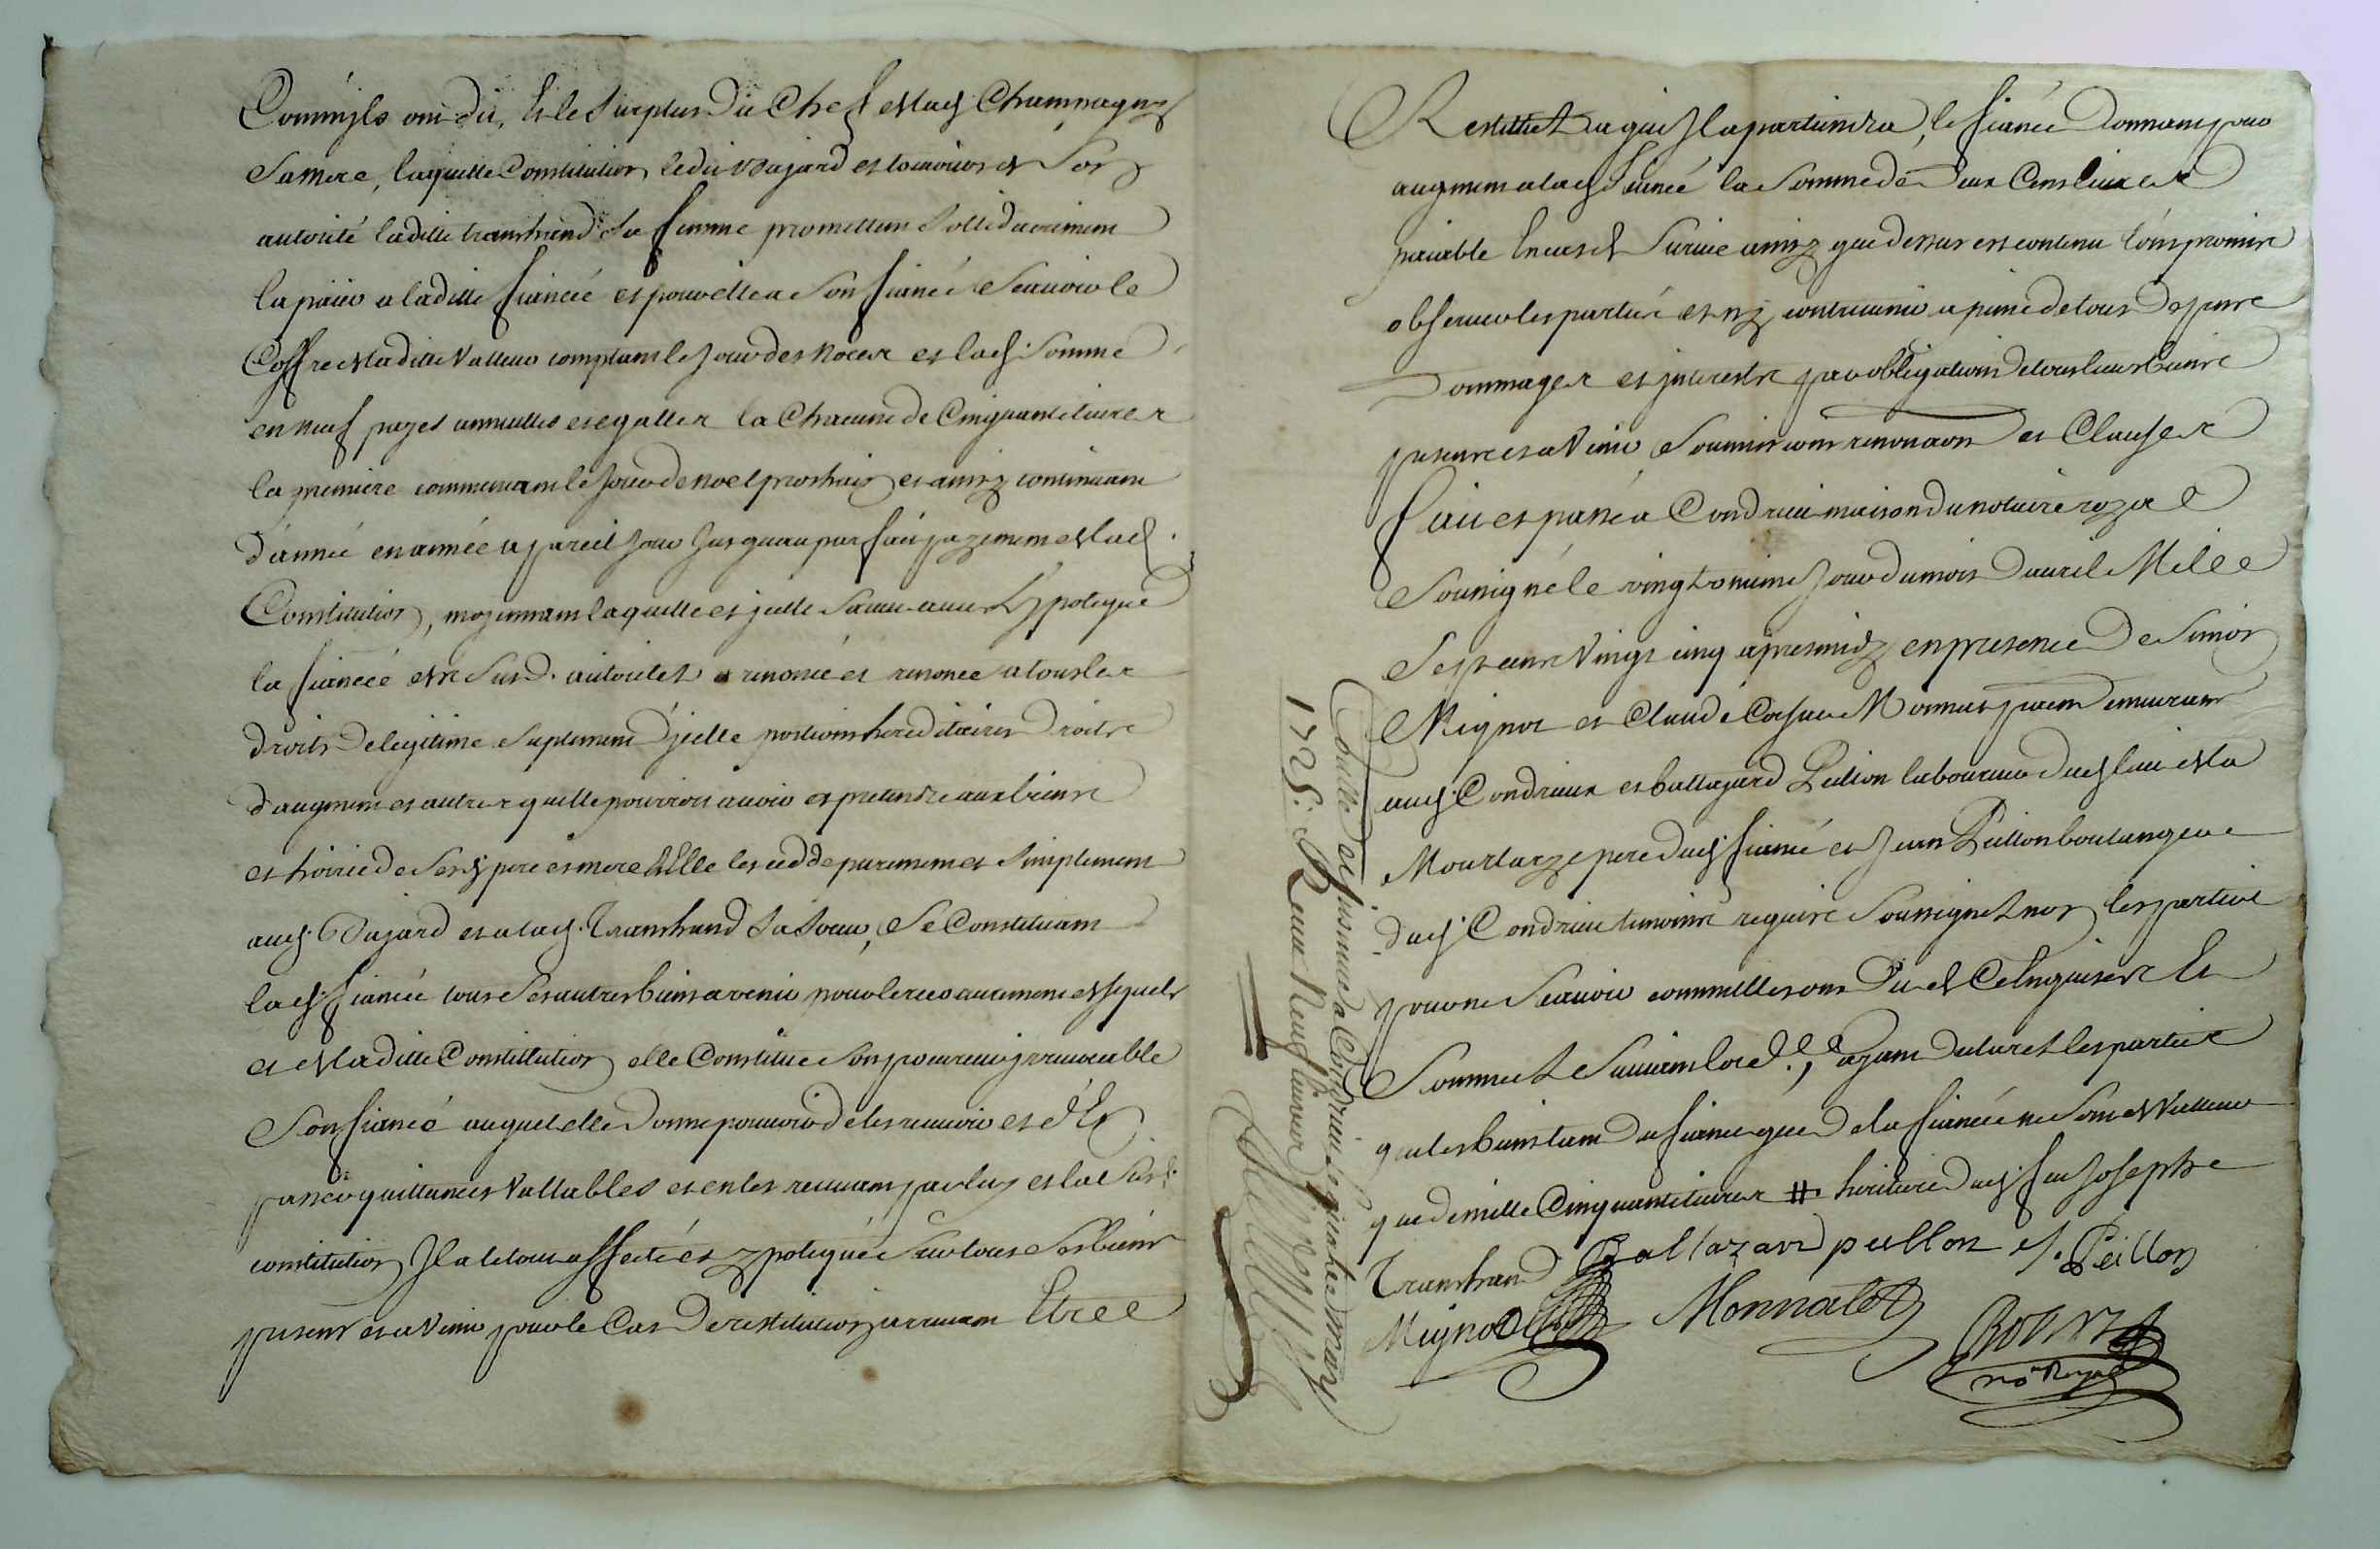 Comm'jls ont dit, Et le Surplus Du Chef de lad. Champagnz
Sa mere, laquelle Constitution ledit Dujard et de Son
autorité laditte tranchand Sa femme promettent Sollidairement
la païer a laditte fiancée et pour elle a Son fiancé Scavoir le
Coffre de laditte Valleur comptant le Jour des Noces et lad. Somme
en neuf payes annuelles et egalles la Chacune de Cinquante livres
la premiere commencant le Jour de noel prochain et ainsy continuant
d'année en année a pareil Jour Jusqu au parfait payement de lad.
Constitution, moyennant laquelle et jcelle Sauve avec Hypoteque
la fiancée de Susd. autorités a renoncé et renonce a tous les
droits De legitime Suplement D'jcelle portions hereditaires Droits
d'augment et autres quelle pourroit avoir et pretendre aux biens
et hoirie de Sesd. pere et mere Elle les cedde purement et Simplement
aud. Dujard et a lad. Tranchand Sa Soeur, Se Constituant
lad. fiancée tous Ses autres biens a venir pour le recouvrement desquels
et de laditte Constitution elle Constitue Son procureur jrrevocable
Son fiancé auquel elle Donne pouvoir de les recevoir et d'En
passer quittances Vallables et en les recevant par luy et lad. Susd.
constitution Jl a le tout affecté et ypotequé Sur tous Ses biens
presents et a Venir pour le Cas De restitution jarrivant Etre
Restitué a qui Jl apartiendra, le fiancé Donnant pour
augment a lad. fiancée la Somme de Deux Cens livres
païable En cas de Survie ainsy que dessus est contenu l'ont promis
observer les parties et n'y contrevenir a peine de tous Depens
Dommages et jnterests par obligation De tous leurs biens
presents et a Venir Soumissions renonciaon et Clauses
fait et passé a Condrieu maison du notaire royal
Soussigné le vingt onzieme Jour du mois D'avril Mil
Sept cent Vingt cinq apres midy en presence De Simon
Mignot et Claude Monnat demeurant
aud. Condrieux et baltazard Peillon laboureur dud. lieu de la
pere dud. fiancé et Jean Peillon boulanger
dud. Condrieu temoins requis Soussignés non les parties
pour ne Scavoir comm'elles ont Dit de Ce Enquises Et
Sommées Suivant lord.ce, ayant declaré les parties
que les biens tant du fiancé que De la fiancée ne Sont de Valleur
que de mille Cinquante livres # heritiere dud. feu Josephe
Tranchand Baltazard peillon J. Peillon
Mignot Monnat
no Royal
Controllé et jnsinué a Condrieu le
1725. Receu Neuf livres